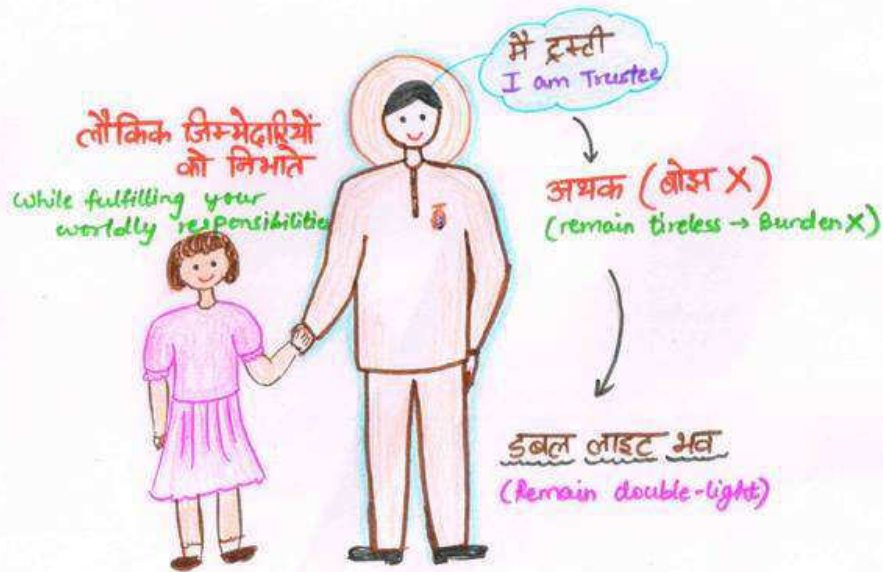 मैं ट्रस्टी
I am Trustee
लौकिक जिम्मेदारियों
को निभाते
While fulfilling your
worldly responsibilities
अथक (बोझ X)
(remain tireless → Burden X)
डबल लाइट भव
(Remain double-light)